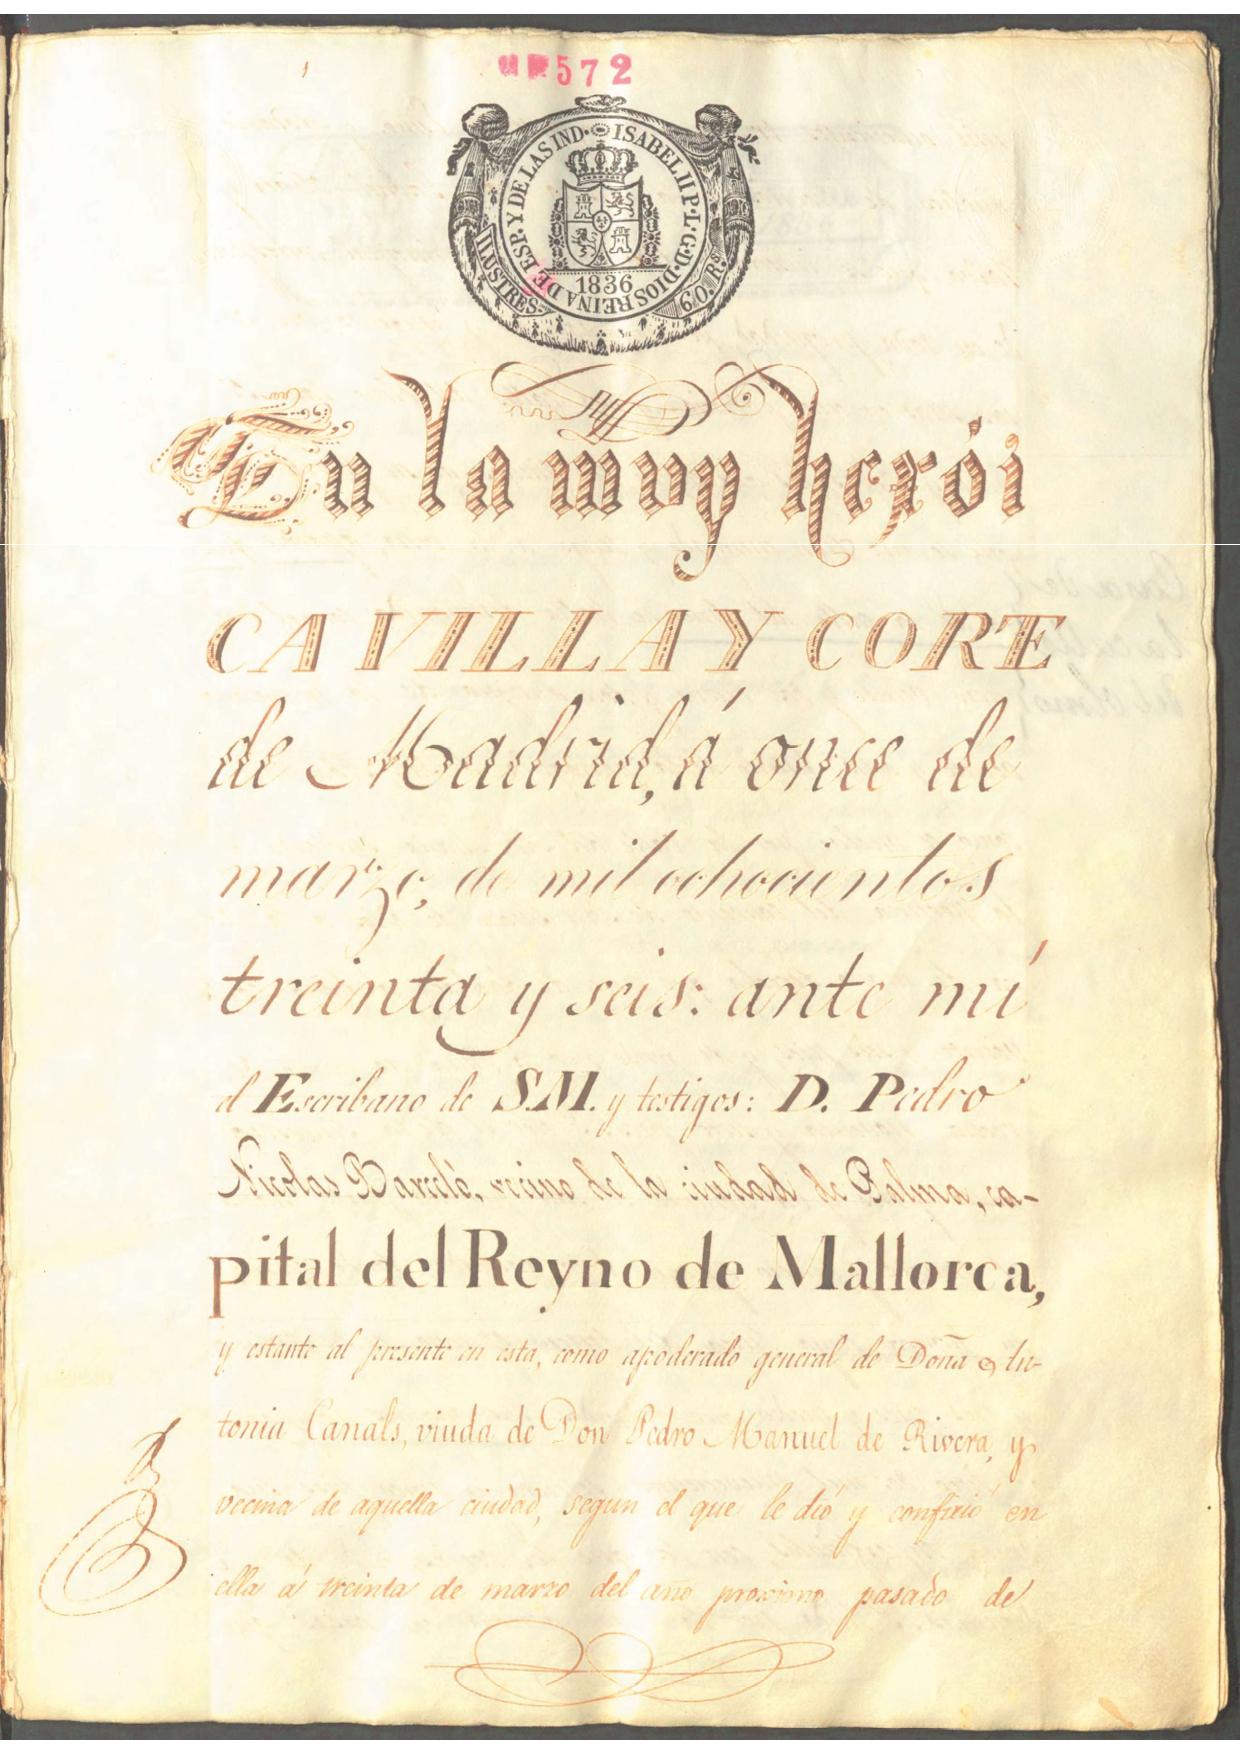 572
ISABEL II P. L. G. D. DIOS REINA DE ESP. Y DE LAS IND.
1836
ILUSTRES
60 Rs
En la muy herói
CA VILLA Y CORTE
de Madrid, á once de
marzo, de mil ochocientos
treinta y seis: ante mí
el Escribano de S.M. y testigos: D. Pedro
Nicolas Barceló, vecino de la ciudad de Palma, ca-
pital del Reyno de Mallorca,
y estante al presente en esta, como apoderado general de Doña An-
tonia Canals, viuda de Don Pedro Manuel de Rivera, y
vecina de aquella ciudad, segun el que le dió y confirió en
ella á treinta de marzo del año proximo pasado de